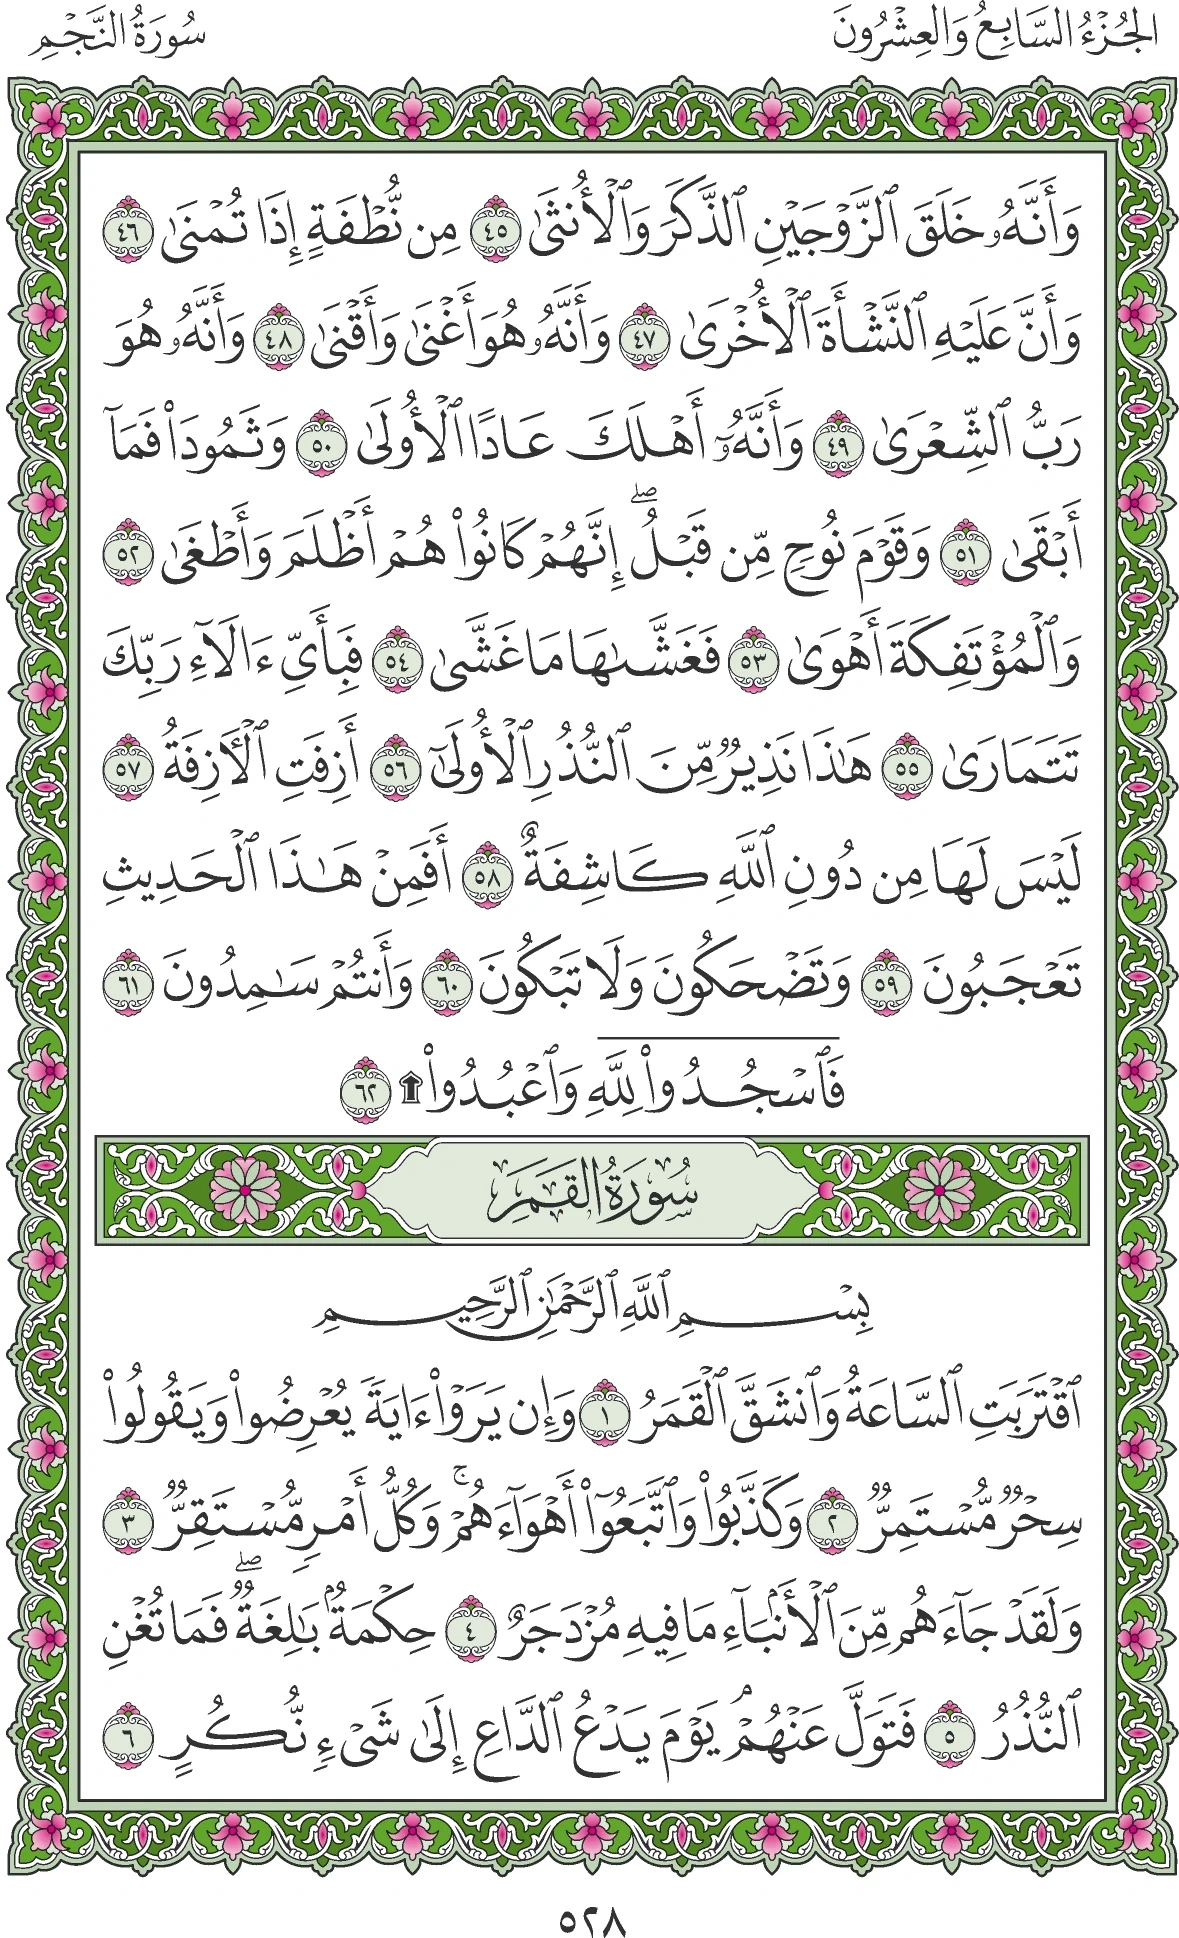 الجُزْءُ السَّابِعُ وَالعِشْرُونَ
سُورَةُ النَّجْمِ
وَأَنَّهُۥ خَلَقَ ٱلزَّوۡجَيۡنِ ٱلذَّكَرَ وَٱلۡأُنثَىٰ ٤٥ مِن نُّطۡفَةٍ إِذَا تُمۡنَىٰ ٤٦
وَأَنَّ عَلَيۡهِ ٱلنَّشۡأَةَ ٱلۡأُخۡرَىٰ ٤٧ وَأَنَّهُۥ هُوَ أَغۡنَىٰ وَأَقۡنَىٰ ٤٨ وَأَنَّهُۥ هُوَ
رَبُّ ٱلشِّعۡرَىٰ ٤٩ وَأَنَّهُۥٓ أَهۡلَكَ عَادًا ٱلۡأُولَىٰ ٥٠ وَثَمُودَاْ فَمَآ
أَبۡقَىٰ ٥١ وَقَوۡمَ نُوحٖ مِّن قَبۡلُۖ إِنَّهُمۡ كَانُواْ هُمۡ أَظۡلَمَ وَأَطۡغَىٰ ٥٢
وَٱلۡمُؤۡتَفِكَةَ أَهۡوَىٰ ٥٣ فَغَشَّىٰهَا مَا غَشَّىٰ ٥٤ فَبِأَيِّ ءَالَآءِ رَبِّكَ
تَتَمَارَىٰ ٥٥ هَٰذَا نَذِيرٞ مِّنَ ٱلنُّذُرِ ٱلۡأُولَىٰٓ ٥٦ أَزِفَتِ ٱلۡأٓزِفَةُ ٥٧
لَيۡسَ لَهَا مِن دُونِ ٱللَّهِ كَاشِفَةٌ ٥٨ أَفَمِنۡ هَٰذَا ٱلۡحَدِيثِ
تَعۡجَبُونَ ٥٩ وَتَضۡحَكُونَ وَلَا تَبۡكُونَ ٦٠ وَأَنتُمۡ سَٰمِدُونَ ٦١
فَٱسۡجُدُواْۤ لِلَّهِۤ وَٱعۡبُدُواْ۩ ٦٢
سُورَةُ القَمَرِ
بِسۡمِ ٱللَّهِ ٱلرَّحۡمَٰنِ ٱلرَّحِيمِ
ٱقۡتَرَبَتِ ٱلسَّاعَةُ وَٱنشَقَّ ٱلۡقَمَرُ ١ وَإِن يَرَوۡاْ ءَايَةٗ يُعۡرِضُواْ وَيَقُولُواْ
سِحۡرٞ مُّسۡتَمِرّٞ ٢ وَكَذَّبُواْ وَٱتَّبَعُوٓاْ أَهۡوَآءَهُمۡۚ وَكُلُّ أَمۡرٖ مُّسۡتَقِرّٞ ٣
وَلَقَدۡ جَآءَهُم مِّنَ ٱلۡأَنۢبَآءِ مَا فِيهِ مُزۡدَجَرٌ ٤ حِكۡمَةُۢ بَٰلِغَةٞۖ فَمَا تُغۡنِ
ٱلنُّذُرُ ٥ فَتَوَلَّ عَنۡهُمۡۘ يَوۡمَ يَدۡعُ ٱلدَّاعِ إِلَىٰ شَيۡءٖ نُّكُرٍ ٦
٥٢٨